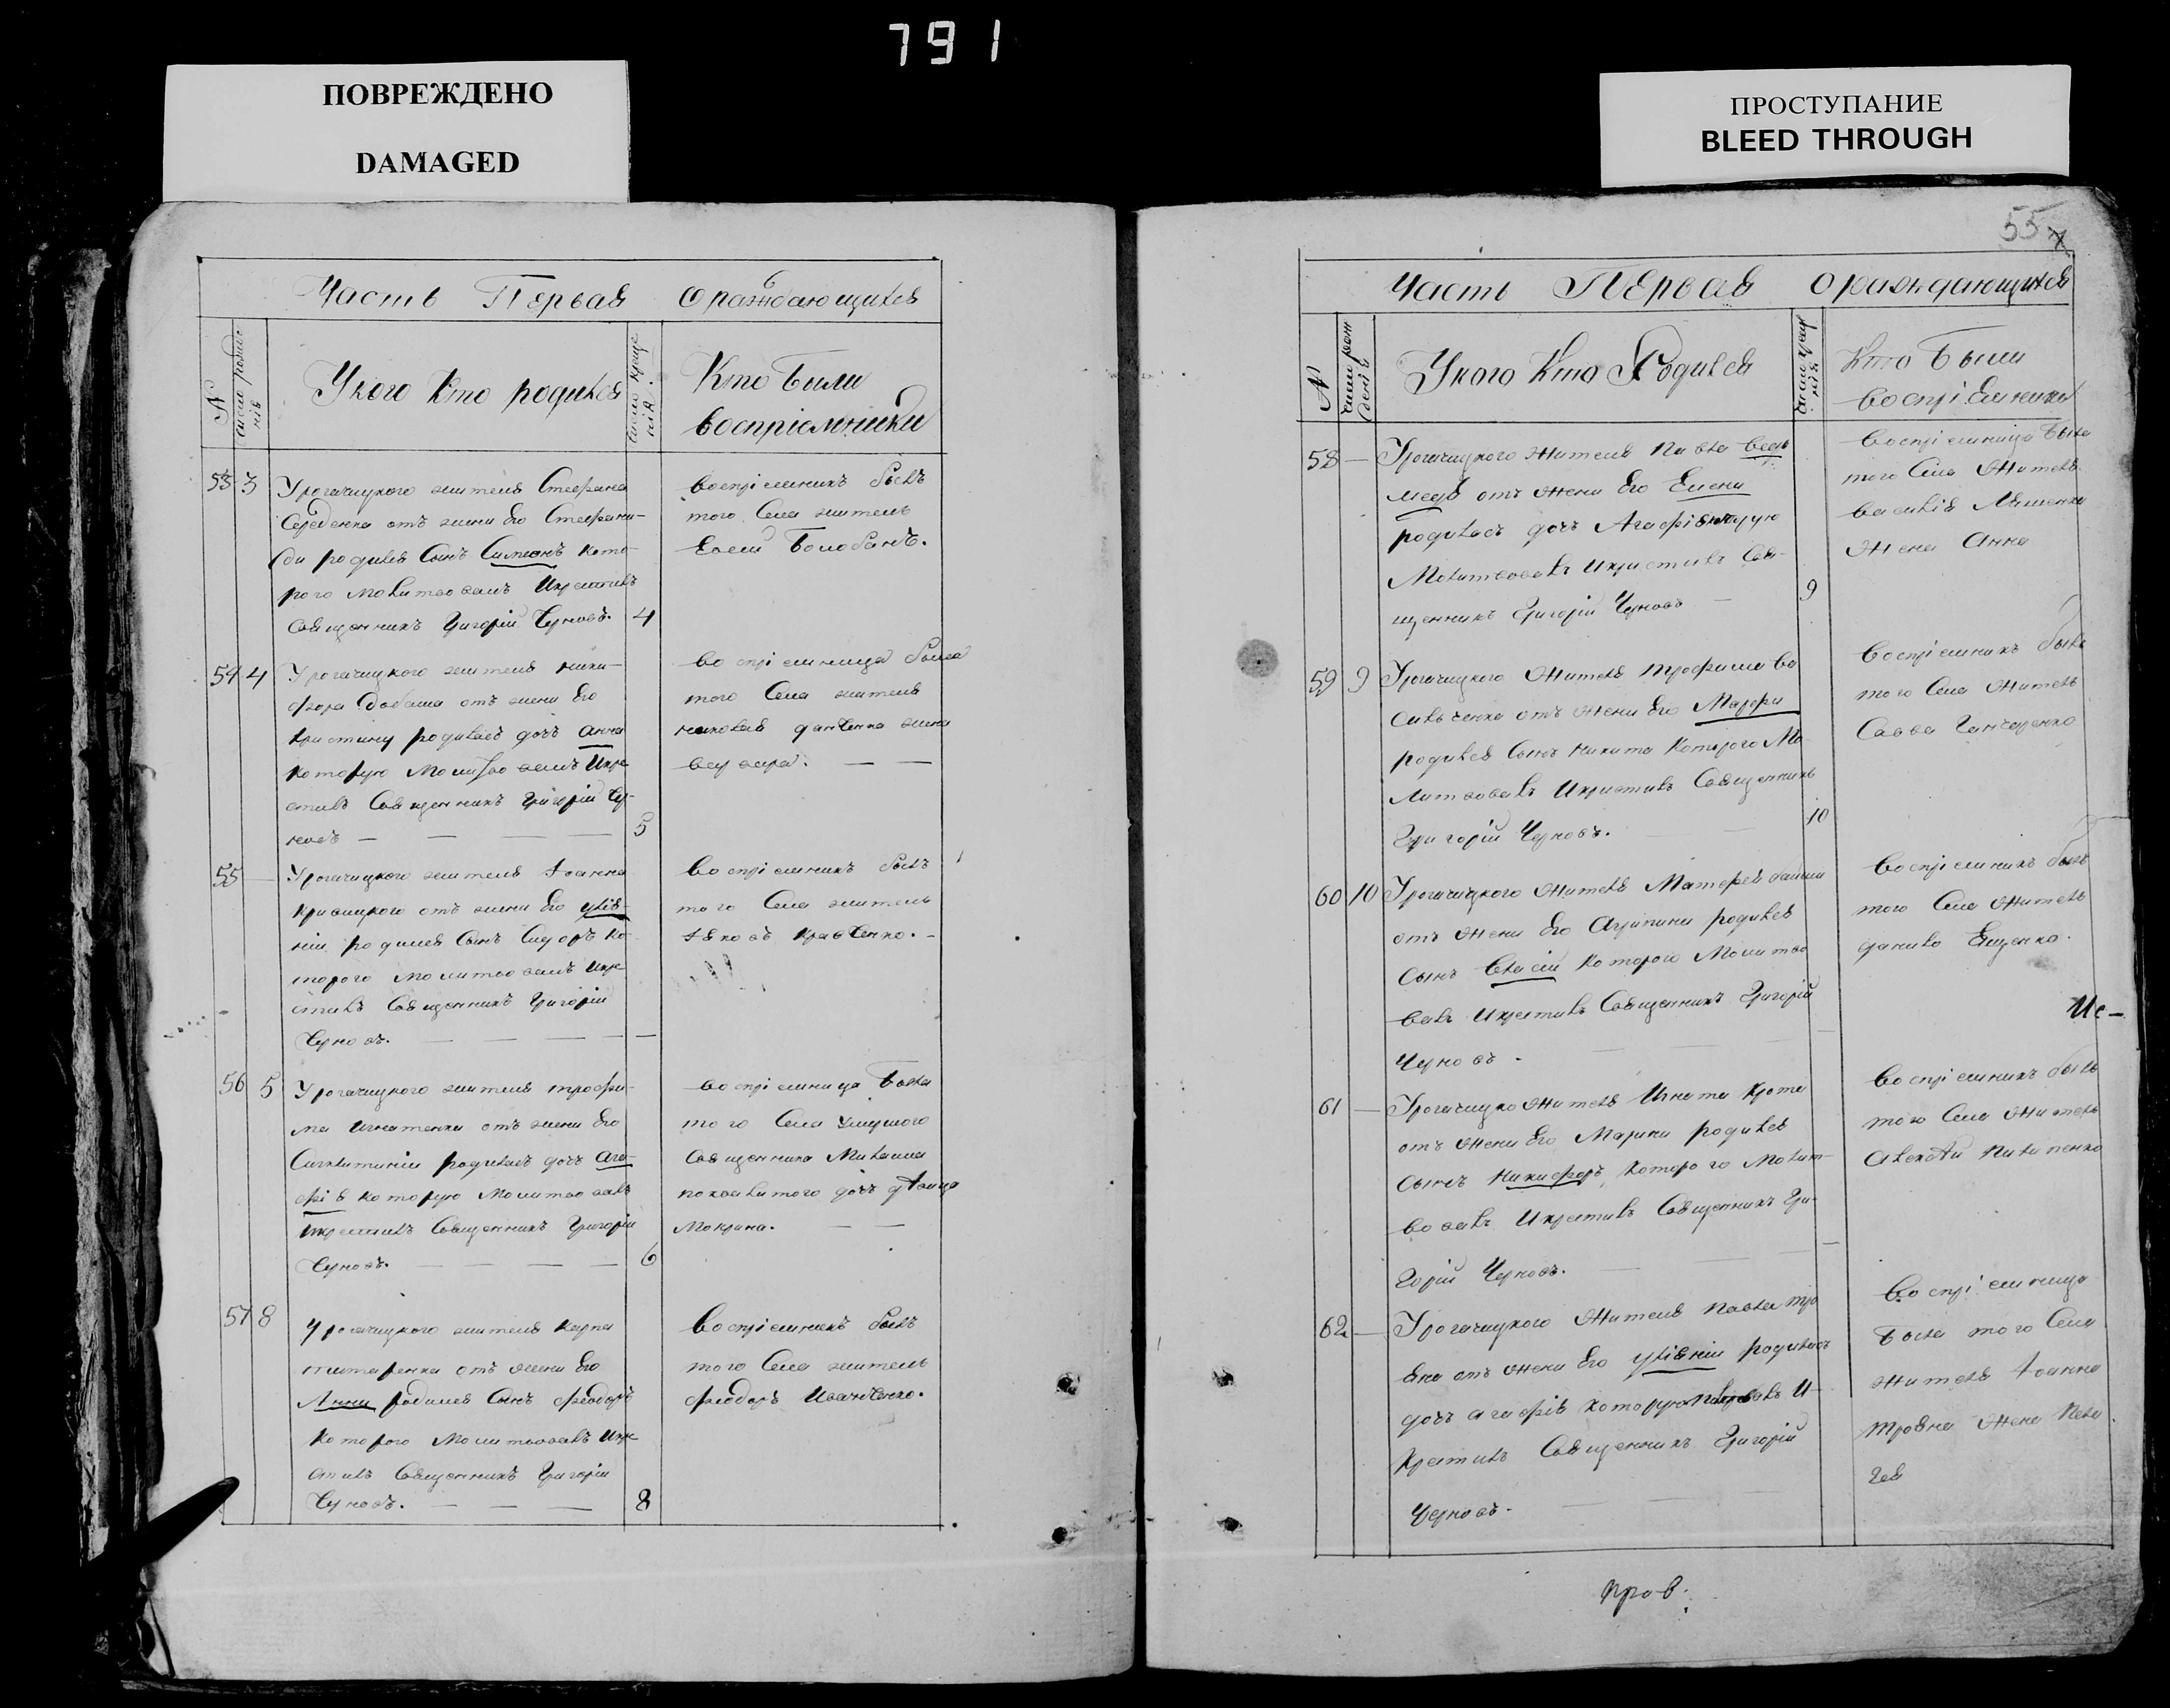 791
ПОВРЕЖДЕНО
DAMAGED
ПРОСТУПАНИЕ
BLEED THROUGH
Часть Первая О раждающихся
N
число рожде
нія
У кого Кто родился
число креще
нія.
Кто Были
воспріемники
53 3 У рогачицкого жителя Стефана
Середенка отъ жени Его Стефани-
ди родился Сынъ Симеонъ кото-
рого молитвовалъ И крестилъ
Священникъ Григорій Черновъ. 4
воспріемникъ былъ
того Села житель
54 4 У рогачицкого жителя ники-
фора отъ жени Его
Христины родилась дочь Анна
которую Молитвовалъ И кре
стилъ Священникъ Григорій Чер-
новъ 5
воспріемница была
того Села жителя
николая жена
55 — У рогачицкого жителя Іоанна
Кривицкого отъ жени Его Улія-
ніи родился Сынъ Сидоръ ко
торого молитвовалъ И кре
стилъ Священникъ Григорій
Черновъ. —
воспріемникъ былъ
того Села житель
Яковъ Кравченко. -
56 5 У рогачицкого жителя трофи-
ма Игнатенка отъ жени Его
родилась дочь Ага-
фія которую Молитвовалъ
И крестилъ Священникъ Григорій
Черновъ. 6
воспріемница Была
того Села умершого
Священника Михаила
дочь девица
Мокрина.
57 8 У рогачицкого жителя Карпа
отъ жени Его
Анни родился Сынъ Феодоръ
которого Молитвовалъ И кре
стилъ Священникъ Григорій
Черновъ. 8
воспріемникъ былъ
того Села житель
Феодоръ Иванченко.
55
Часть ПЕрвая О раждающихся
N
число рож
денія
У кого Кто Родился
число креще
нія
Кто Были
воспріЕмники
58 — У рогачицкого жителя Павла
отъ жени Его Елени
родилась дочь Агафія которую
Молитвовалъ И крестилъ Свя-
щенникъ Григорій Черновъ 9
воспріемница Была
того Села жителя
василія Ляшенка
жена Анна
59 9 У рогачицкого жителя трофима Ва
сильченка отъ жени Его Марфи
родился Сынъ Никита Которого Мо-
литвовалъ И крестилъ Священникъ
Григорій Черновъ. 10
воспріемникъ былъ
того Села житель
Савва Ганчаренко
60 10 У рогачицкого жителя Матфея
отъ жени Его Агрипини родился
Сынъ которого Молитво
валъ И крестилъ Священникъ Григорій
Черновъ. —
воспріемникъ былъ
того Села житель
данило Ещенко.
Ис-
61 — У рогачицко жителя Игната Крота
отъ жени Его Марини родился
Сынъ Никифоръ, Которого Молит-
вовалъ И крестилъ Священникъ Гри-
горій Черновъ. —
воспріемникъ былъ
того Села житель
Алексѣй Пилипенко
62 — У рогачицкого жителя Павла тро
яна отъ жени Его Уліяніи родилась
дочь Агафія которую И
крестилъ Священникъ Григорій
Черновъ.
воспріемница
Была того Села
жителя Іоанна
трояна жена Пела
гея
Пров.